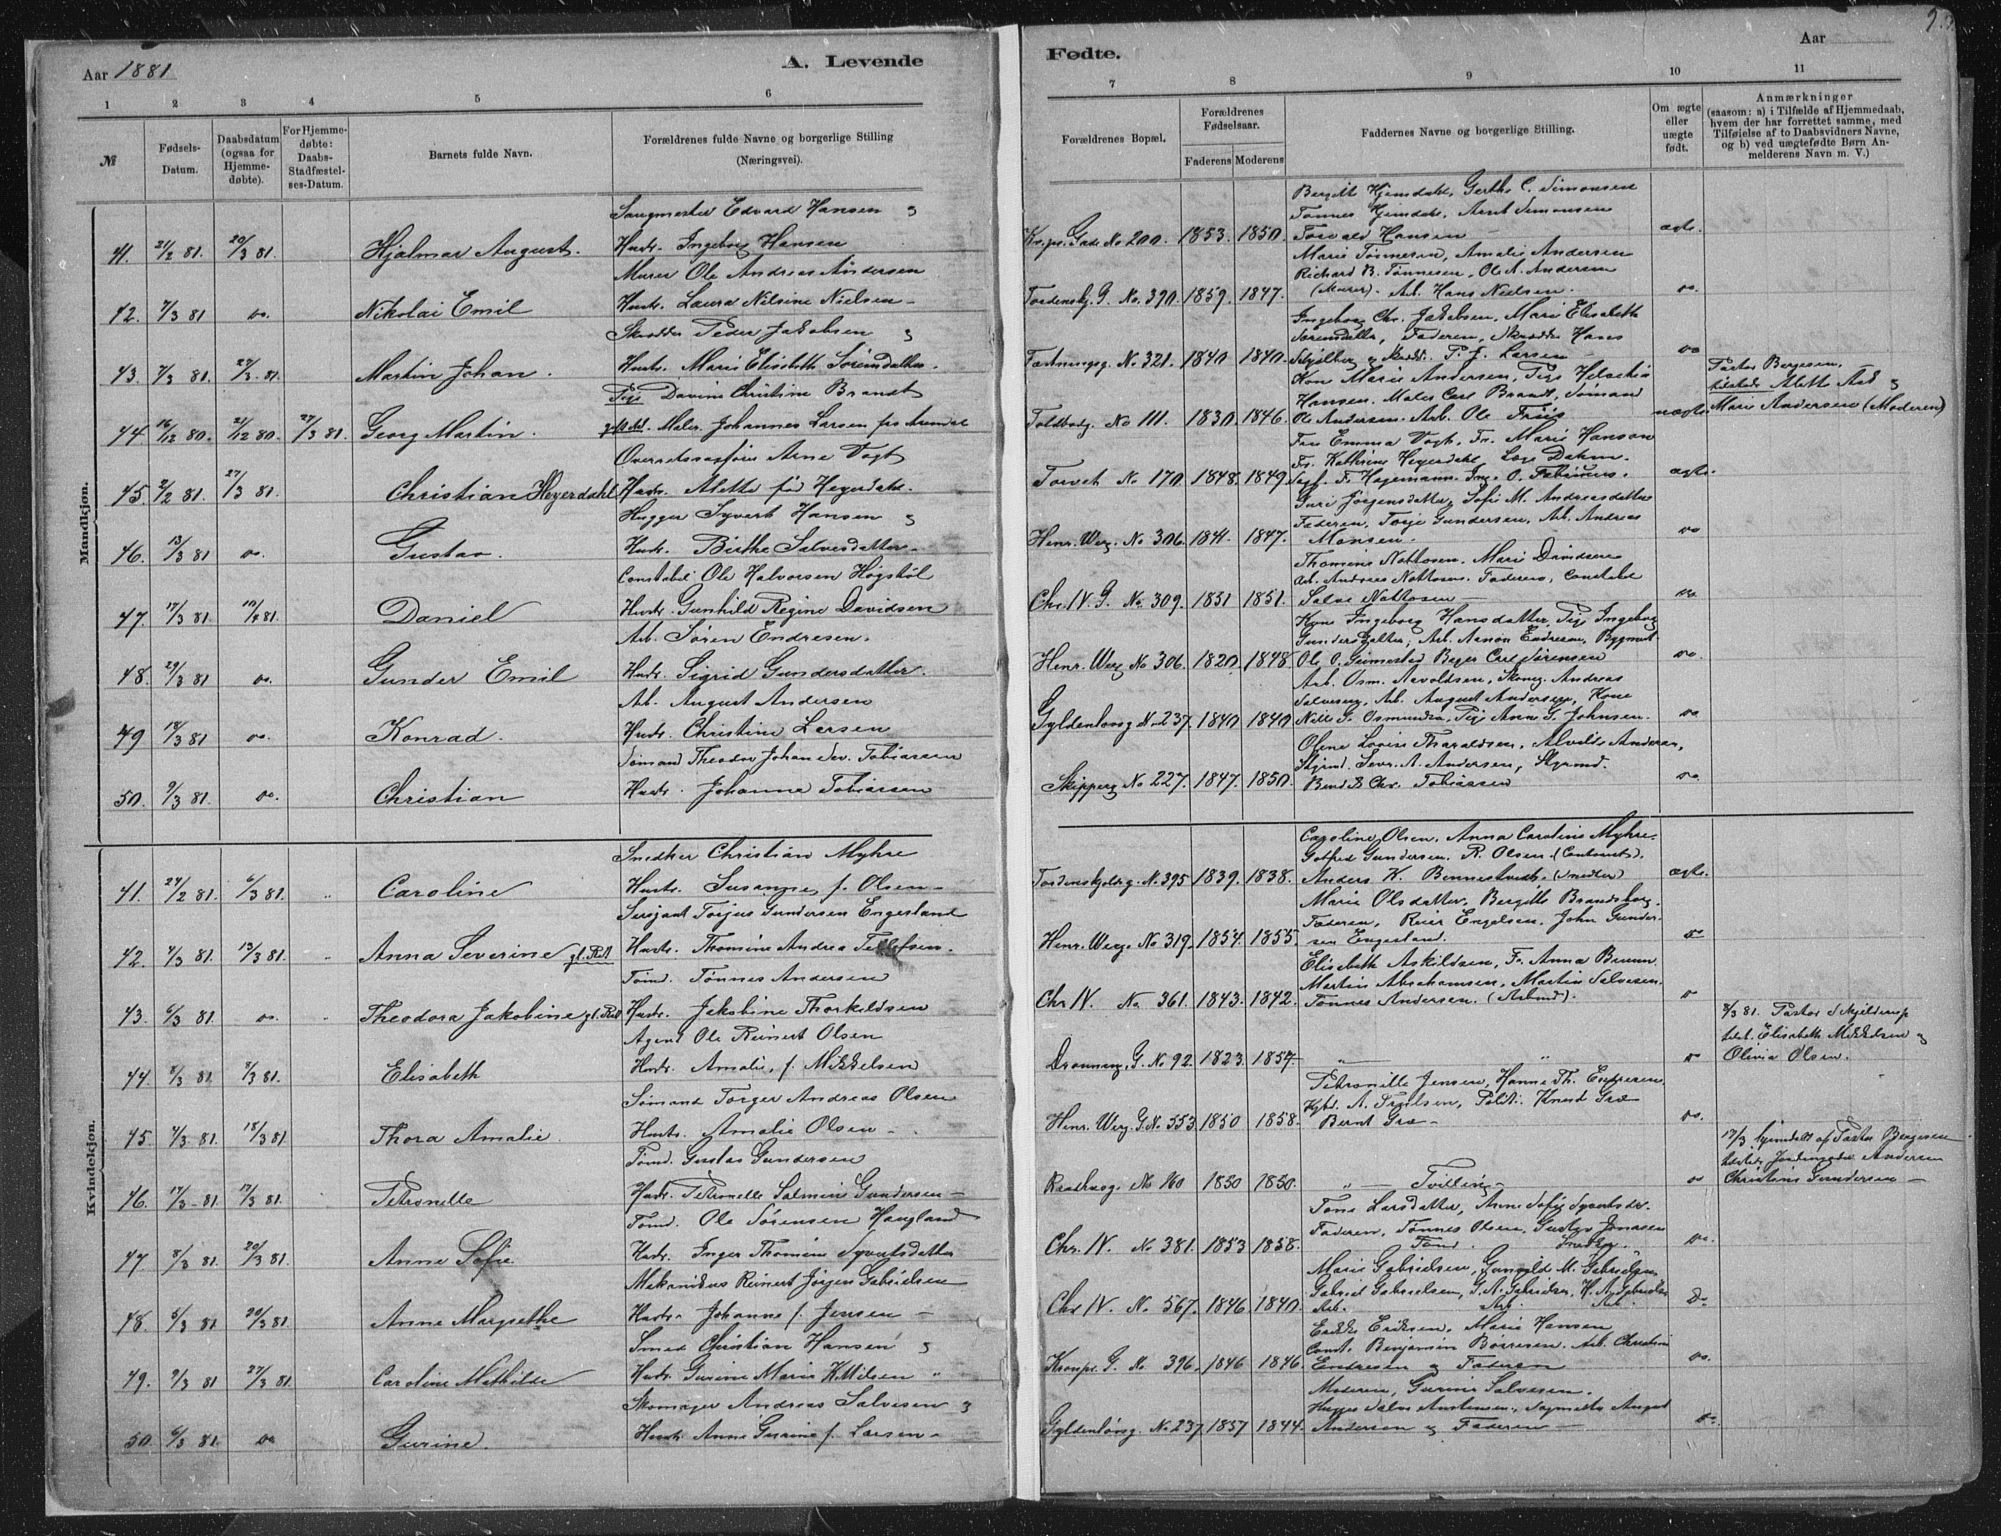 Aar 1881
A. Levende
Fødte.
Aar
1 2 3 4 5 6 7 8 9 10 11
№
Fødsels-Datum.
Daabsdatum (ogsaa for Hjemme-døbte).
For Hjemme-døbte: Daabs-Stadfæstel-ses-Datum.
Barnets fulde Navn.
Forældrenes fulde Navne og borgerlige Stilling (Næringsvei).
Forældrenes Bopæl.
Forældrenes Fødselsaar.
Faderens Moderens
Faddernes Navne og borgerlige Stilling.
Om ægte eller uægte født.
Anmærkninger
(saasom: a) i Tilfælde af Hjemmedaab, hvem der har forrettet samme, med Tilføielse af to Daabsvidners Navne, og b) ved uægtefødte Børn An-melderens Navn m. V.)
Mandkjøn.
Sangmester Edvard Hansen
Bergitt Hjemdahl, Gerthe C. Simonsen
Tønnes Hjemdahl, Arnt Simonsen
41. 21/2 81. 20/3 81. Hjalmar August. Hustr. Ingeborg Hansen
Kr.ps. Gade No 200. 1853. 1850. Torvald Hansen ægte.
Murer Ole Andreas Andersen
Marie Tønnesen, Amalie Andersen
Richard B. Tønnesen, Ole A. Andersen
42. 7/3 81 do. Nikolai Emil Hustr. Laura Nilsine Nielsen
Tordensk. G. No. 390. 1859. 1847. (Murer). Arb. Hans Nielsen. do.
Skrædder Peder Jakobsen
Ingeborg Chr. Jakobsen, Marie Elisabeth
Sørensdatter, Faderen, Skrædder Hans
43. 7/3 81. 27/3 81. Martin Johan. Hustr. Marie Elisabeth Sørensdatter.
Fæstningsg. No. 321. 1840 1840. P. J. Larsen do
Pige Davine Christine Brandt
Kone Marie Andersen, Pige
Hansen. Maler Carl Brandt, Sømand
Pastor Bergesen.
tilstede Alette Aas
Marie Andersen (Moderen)
44 16/12 80. 21/12 80. 27/3 81. Georg Martin. Maler Johannes Larsen fra Arendal
Toldbodg. No 111. 1830. 1846. Ole Andersen. Arb. Ole Friis uægte.
Overretssagfører Arne Vogt
Fru Emma Vogt, Fr. Marie Hanson
Fr. Kathrine Heyerdahl, Læge Dahm.
45. 2/2 81. 27/3 81. Christian Heyerdahl Hustr. Alette født Heyerdahl.
Torvet No 170. 1848. 1849 Sagf. F. Hagemann. Ing. O. ægte.
Hugger Syvert Hansen
Guri Jørgensdatter, Sofie M. Andreasdatter
Faderen, Torje Gundersen, Arb. Andreas
46. 13/3 81 do. Gustav. Hustr. Birthe Salvesdatter
Henr. Werg. No 306. 1841. 1847. Monsen. do
Constabel Ole Halvorsen Høgstøl
Thomine Nottosen, Marie Davidsen
Arb. Andreas Nottosen. Faderen, Constabel
47. 17/3 81 10/4 81. Daniel Hustr. Gunhild Regine Davidsen
Chr. IV. G. No. 309. 1851 1851. Salve Nottosen do.
Arb. Søren Endresen.
Kone Ingeborg Hansdatter, Pige Ingeborg
Gundersdatter, Arb. Aanon Endresen, Bygmst.
48. 29/3 81 do. Gunder Emil Hustr. Sigrid Gundersdatter.
Henr. Werg. No 306. 1820. 1848. Ole O. Grimestad Bager Carl Sørensen do.
Arb. August Andersen
Arb. Osm. Aavoldsen, Skomg. Andreas
Salvesen, Arb. August Andersen, Kone
49 14/3 81 do. Konrad. Hustr. Christine Larsen
Gyldenløvsg No 237. 1840 1840 Nille G. Osmundsen, Pige Anne G. Johnsen. do
Sømand Theodor Johan Sev. Tobiassen
Olene Lovise Tharaldsen, Alvilde Andersen,
Styrmd. Sevr. A. Andersen, Styrmd.
50. 9/3 81. do. Christian Hustr. Johanne Tobiassen
Skipperg No 227. 1847. 1850. Bendt Chr. Tobiassen do.
Kvindekjøn.
Snedker Christian Myhre
Caroline Olsen, Anna Caroline Myhre.
Gotfred Gundersen. R. Olsen.
41. 24/2 81. 6/3 81. Caroline Hustr. Susanne f. Olsen
Tordenskjoldsg. No. 395 1839. 1838. Anders K. Bennestvedt. (Snedker) ægte.
Sersjant Torjus Gundersen Engesland
Marie Olsdatter, Bergitte Brandsborg.
Faderen, Reier Engelsen, John Gunder-
42. 4/3 81. 13/3 81. Anna Severine gl. Rtl Hustr. Thomine Andrea Tellefsen.
Henr. Werg. No 319. 1854. 1855. sen Engesland. do
Tømd. Tønnes Andersen
Elisabeth Askildsen, Fr. Anna Bruun
Martin Abrahamsen, Martin Salvesen.
43. 6/3 81. do. Theodora Jakobine gl. Rtl Hustr. Jakobine Thorkildsen
Chr IV. No 361. 1843. 1842. Tønnes Andersen. (Arbmd). do
Agent Ole Reinert Olsen
8/3 81. Pastor Skjelderup
tilst. Elisabeth Mikkelsen
Olivia Olsen.
44. 8/3 81. 8/3 81. Elisabeth Hustr. Amalie, f. Mikkelsen
Dronning. G. No 92. 1823. 1857. " " do
Sømand Torger Andreas Olsen
Petronille Jensen, Hanne Th. Endresen.
A. Trulsen, Politi. Knud Græ
45. 4/3 81. 18/3 81. Thora Amalie. Hustr. Amalie Olsen
Henr. Werg. G. No. 353 1850 1858. Bernt Græ do.
Tømd. Gustav Gundersen
17/3 hjemdøbt af Pastor Bergesen
tilstede Jordemoder Andersen
Christine Gundersen
46. 17/3 81. 17/3 81. Petronelle Hustr. Petronelle Salmine Gundersen
Raadhusg. No 160 1850 1850. " Tvilling do
Tømd. Ole Sørensen Haugland
Tone Larsdatter, Anne Sofie Syvertsdr.
Faderen, Tønnes Olsen, Gustav Jonassen
47. 8/3 81 20/3 81. Anne Sofie. Hustr. Inger Thomine Syvertsdatter
Chr. IV. No 381. 1853 1858. Tømd. Snedker. do.
Mekanikus Reinert Jørgen Gabrielsen
Marie Gabrielsen, Gunvilde M. Gabrielsen
Gabriel Gabrielsen, G. A. Gabrielsen, H. A. Gabrielsen
48. 5/3 81 20/3 81. Anne Margrethe Hustr. Johanne f. Jensen
Chr IV. No. 567. 1846 1840. Arb. Arb. Arb. Do
Smed Christian Hansen
Erikke Eriksen, Marie Hansen
Const. Benjamin Børresen. Arb. Christian
49. 9/3 81 27/3 81. Caroline Mathilde Hustr. Gurine Marie K. Nilsen
Kronpr. G. No. 396. 1846 1846. Endresen og Faderen do.
Skomager Andreas Salvesen
Moderen, Gurine Salvesen.
Hugger Salve Anstensen, August
50. 6/3 81 do Gurine. Hustr. Anne Gurine f. Larsen
Gyldenløvsg. No. 237. 1857 1844. Andersen og Faderen do.